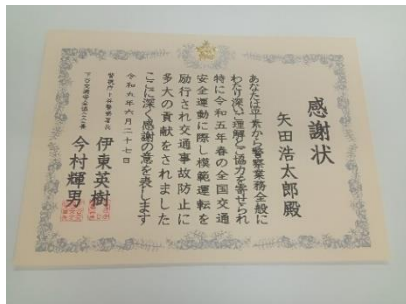 感謝状
矢田浩太郎殿
あなたは平素から警察業務全般に
わたり深い理解と協力を寄せられ
特に令和五年春の全国交通
安全運動に際し模範運転を
励行され交通事故防止に
多大の貢献をされました
ここに深く感謝の意を表します
令和六年六月二十七日
伊東英樹
今村輝男